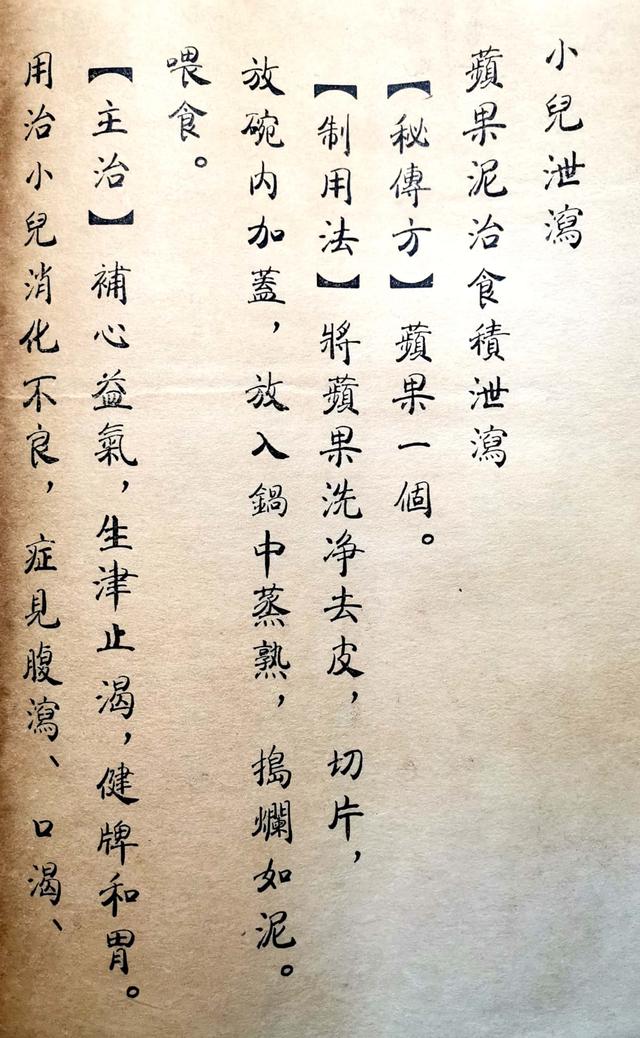 小兒泄瀉
蘋果泥治食積泄瀉
【秘傳方】蘋果一個。
【制用法】將蘋果洗净去皮，切片，
放碗内加蓋，放入鍋中蒸熟，搗爛如泥。
喂食。
【主治】補心益氣，生津止渴，健牌和胃。
用治小兒消化不良，症見腹瀉、口渴、